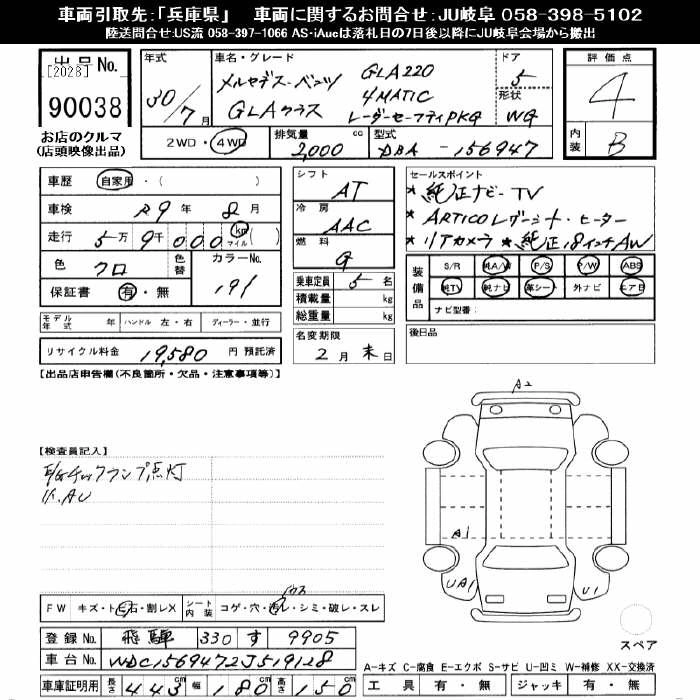 車両引取先:「兵庫県」 車両に関するお問合せ:JU岐阜 058-398-5102
陸送問合せ:US流 058-397-1066 AS-iAucは落札日の7日後以降にJU岐阜会場から搬出
出品No.
[2028]
90038
お店のクルマ
(店頭映像出品)
年式
30/7月
車名・グレード
メルセデス・ベンツ GLA220
GLAクラス 4MATIC
レーダーセーフティPKG
ドア
5
形状
WG
評価点
4
内装
B
2WD・4WD
排気量
2,000 cc
型式
DBA-156947
車歴 自家用・( )
車検 R9年 8月
走行 5万 9千 000 km マイル ( )
色 クロ 色替 カラーNo. 191
保証書 有・無
シフト AT
冷房 AAC
燃料 G
乗車定員 5名
積載量 kg
総重量 kg
セールスポイント
* 純正ナビ-TV
* ARTICOレザーシート・ヒーター
* リアカメラ * 純正18インチAW
装備品
S/R 純A/W P/S P/W ABS
純TV 純ナビ 革シート 外ナビ エアB
ナビ型番:
モデル年式 年 ハンドル 左・右 ディーラー・並行
リサイクル料金 19,580 円 預託済
名変期限
2月 末日
後日品
【出品店申告欄(不良箇所・欠品・注意事項等)】
【検査員記入】
E/Gチェックランプ点灯
A2
A1
UA1
U1
スペア
FW キズ・トビ石・割レX シート内装 コゲ・穴・汚レ・シミ・破レ・スレ
登録No. 飛騨 330 す 9905
車台No. WDC1569472J519128
車庫証明用 長さ 443cm 幅 180cm 高さ 150cm
A-キズ C-腐食 E-エクボ S-サビ U-凹ミ W-補修 XX-交換済
工具 有・無 ジャッキ 有・無